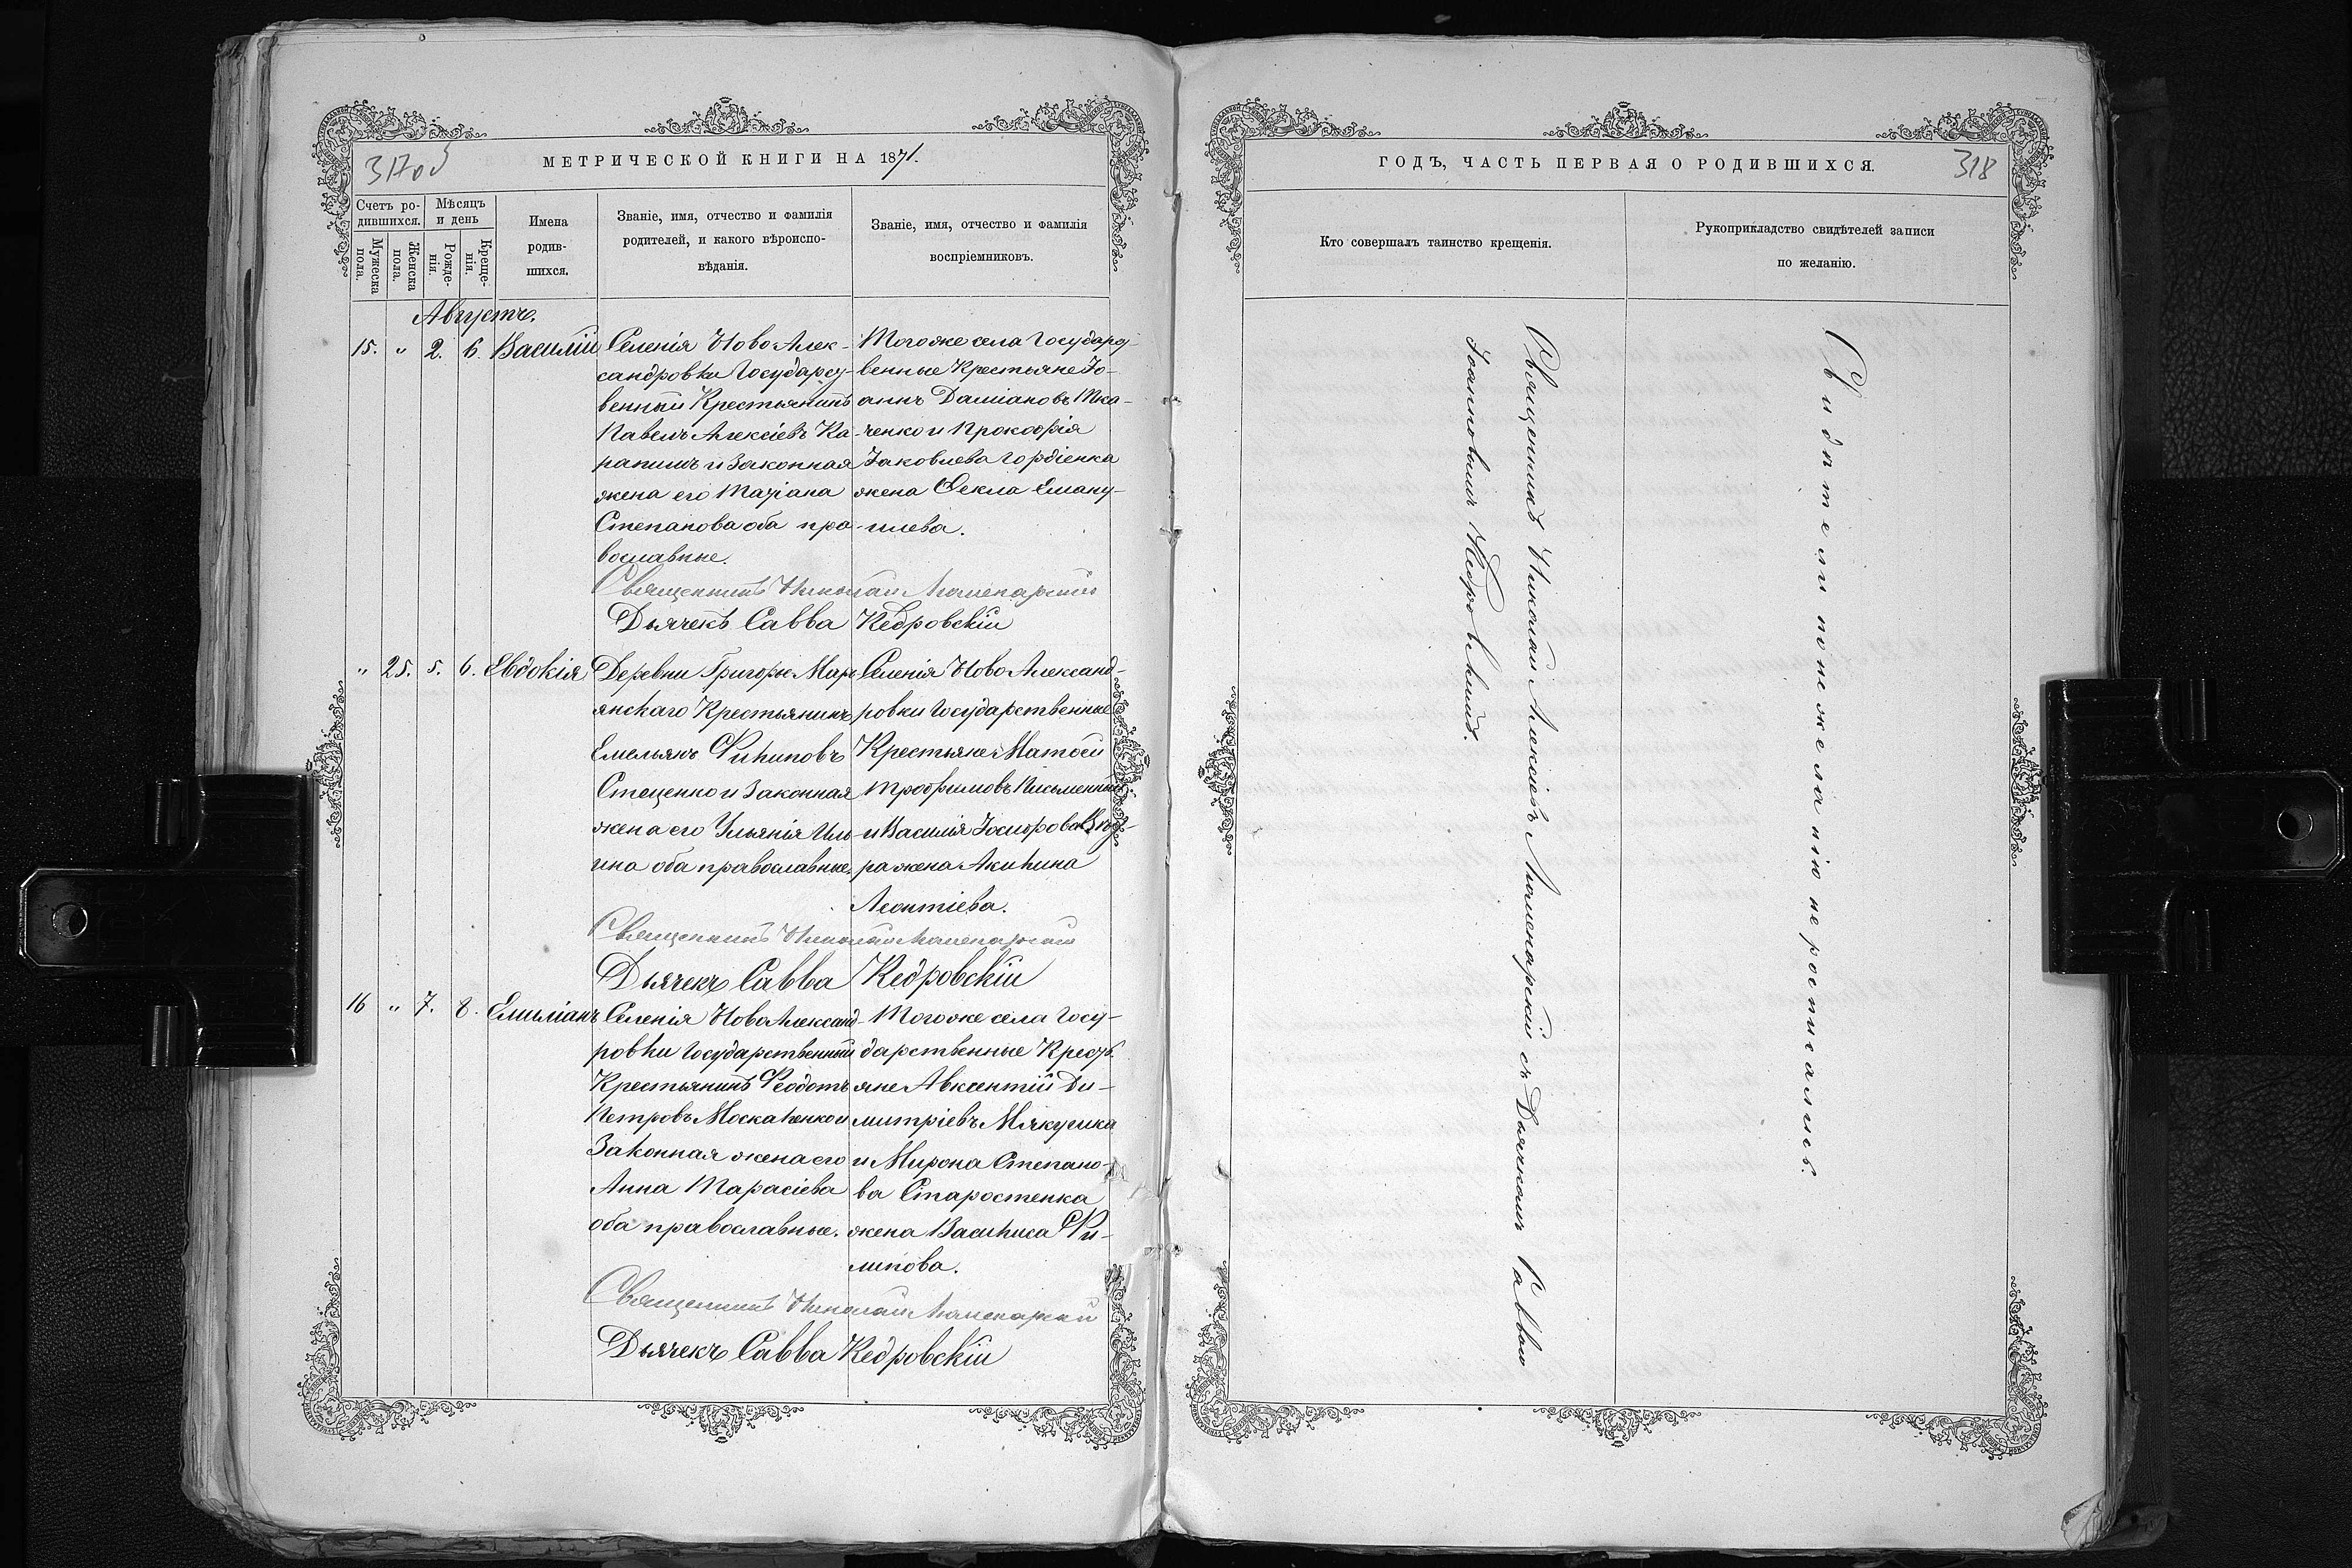 317об
МЕТРИЧЕСКОЙ КНИГИ НА 1871.
Счетъ ро-
дившихся.
Мѣсяцъ
и день
Мужеска
пола.
Женска
пола.
Рожде-
нія.
Креще-
нія.
Имена
родив-
шихся.
Званіе, имя, отчество и фамилія
родителей, и какого вѣроиспо-
вѣданія.
Званіе, имя, отчество и фамилія
воспріемниковъ.
Августъ.
15. " 2. 6. Василій
Селенія Ново Алек-
сандровки Государст-
венный Крестьянинъ
Павелъ Алексіевъ Ка-
рапишъ и Законная
жена его Татіана
Степанова оба пра-
вославные.
Тогоже села Государст-
венные Крестьяне Іо-
аннъ Даміановъ Тка-
ченко и Прокофія
Іаковлева Гордіенка
жена Ѳекла Еману-
илева.
Священникъ Николай
Дьячекъ Савва Кедровскій
" 25. 5. 6. Евдокія
Деревни Григоры Марь-
янскаго Крестьянинъ
Емельянъ Филиповъ
Стеценко и Законная
жена его Ульянія Иль-
ина оба православные.
Селенія Ново Александ-
ровки Государственные
Крестьяне Матѳей
Трофимовъ Письменный
и Василія Іосифова
ра жена Акилина
Леонтіева.
Священникъ Николай
Дьячекъ Савва Кедровскій
16 " 7. 8. Емиліанъ
Селенія Ново Александ-
ровки Государственный
Крестьянинъ Ѳеодотъ
Петровъ Москаленко и
Законная жена его
Анна Тарасіева
оба православные.
Тогоже села Госу-
дарственные Кресть-
яне Авксентій Ди-
митріевъ Мякушка
и Мирона Степано-
ва Старостенка
жена Василиса Фи-
липова.
Священникъ Николай
Дьячекъ Савва Кедровскій
ГОДЪ, ЧАСТЬ ПЕРВАЯ О РОДИВШИХСЯ.
318
Кто совершалъ таинство крещенія.
Рукоприкладство свидѣтелей записи
по желанію.
Священникъ Николай Алексіевъ съ Дьячкомъ Саввою
Іоанновымъ Кедровскимъ.
Свидѣтели по нежеланію не росписались.